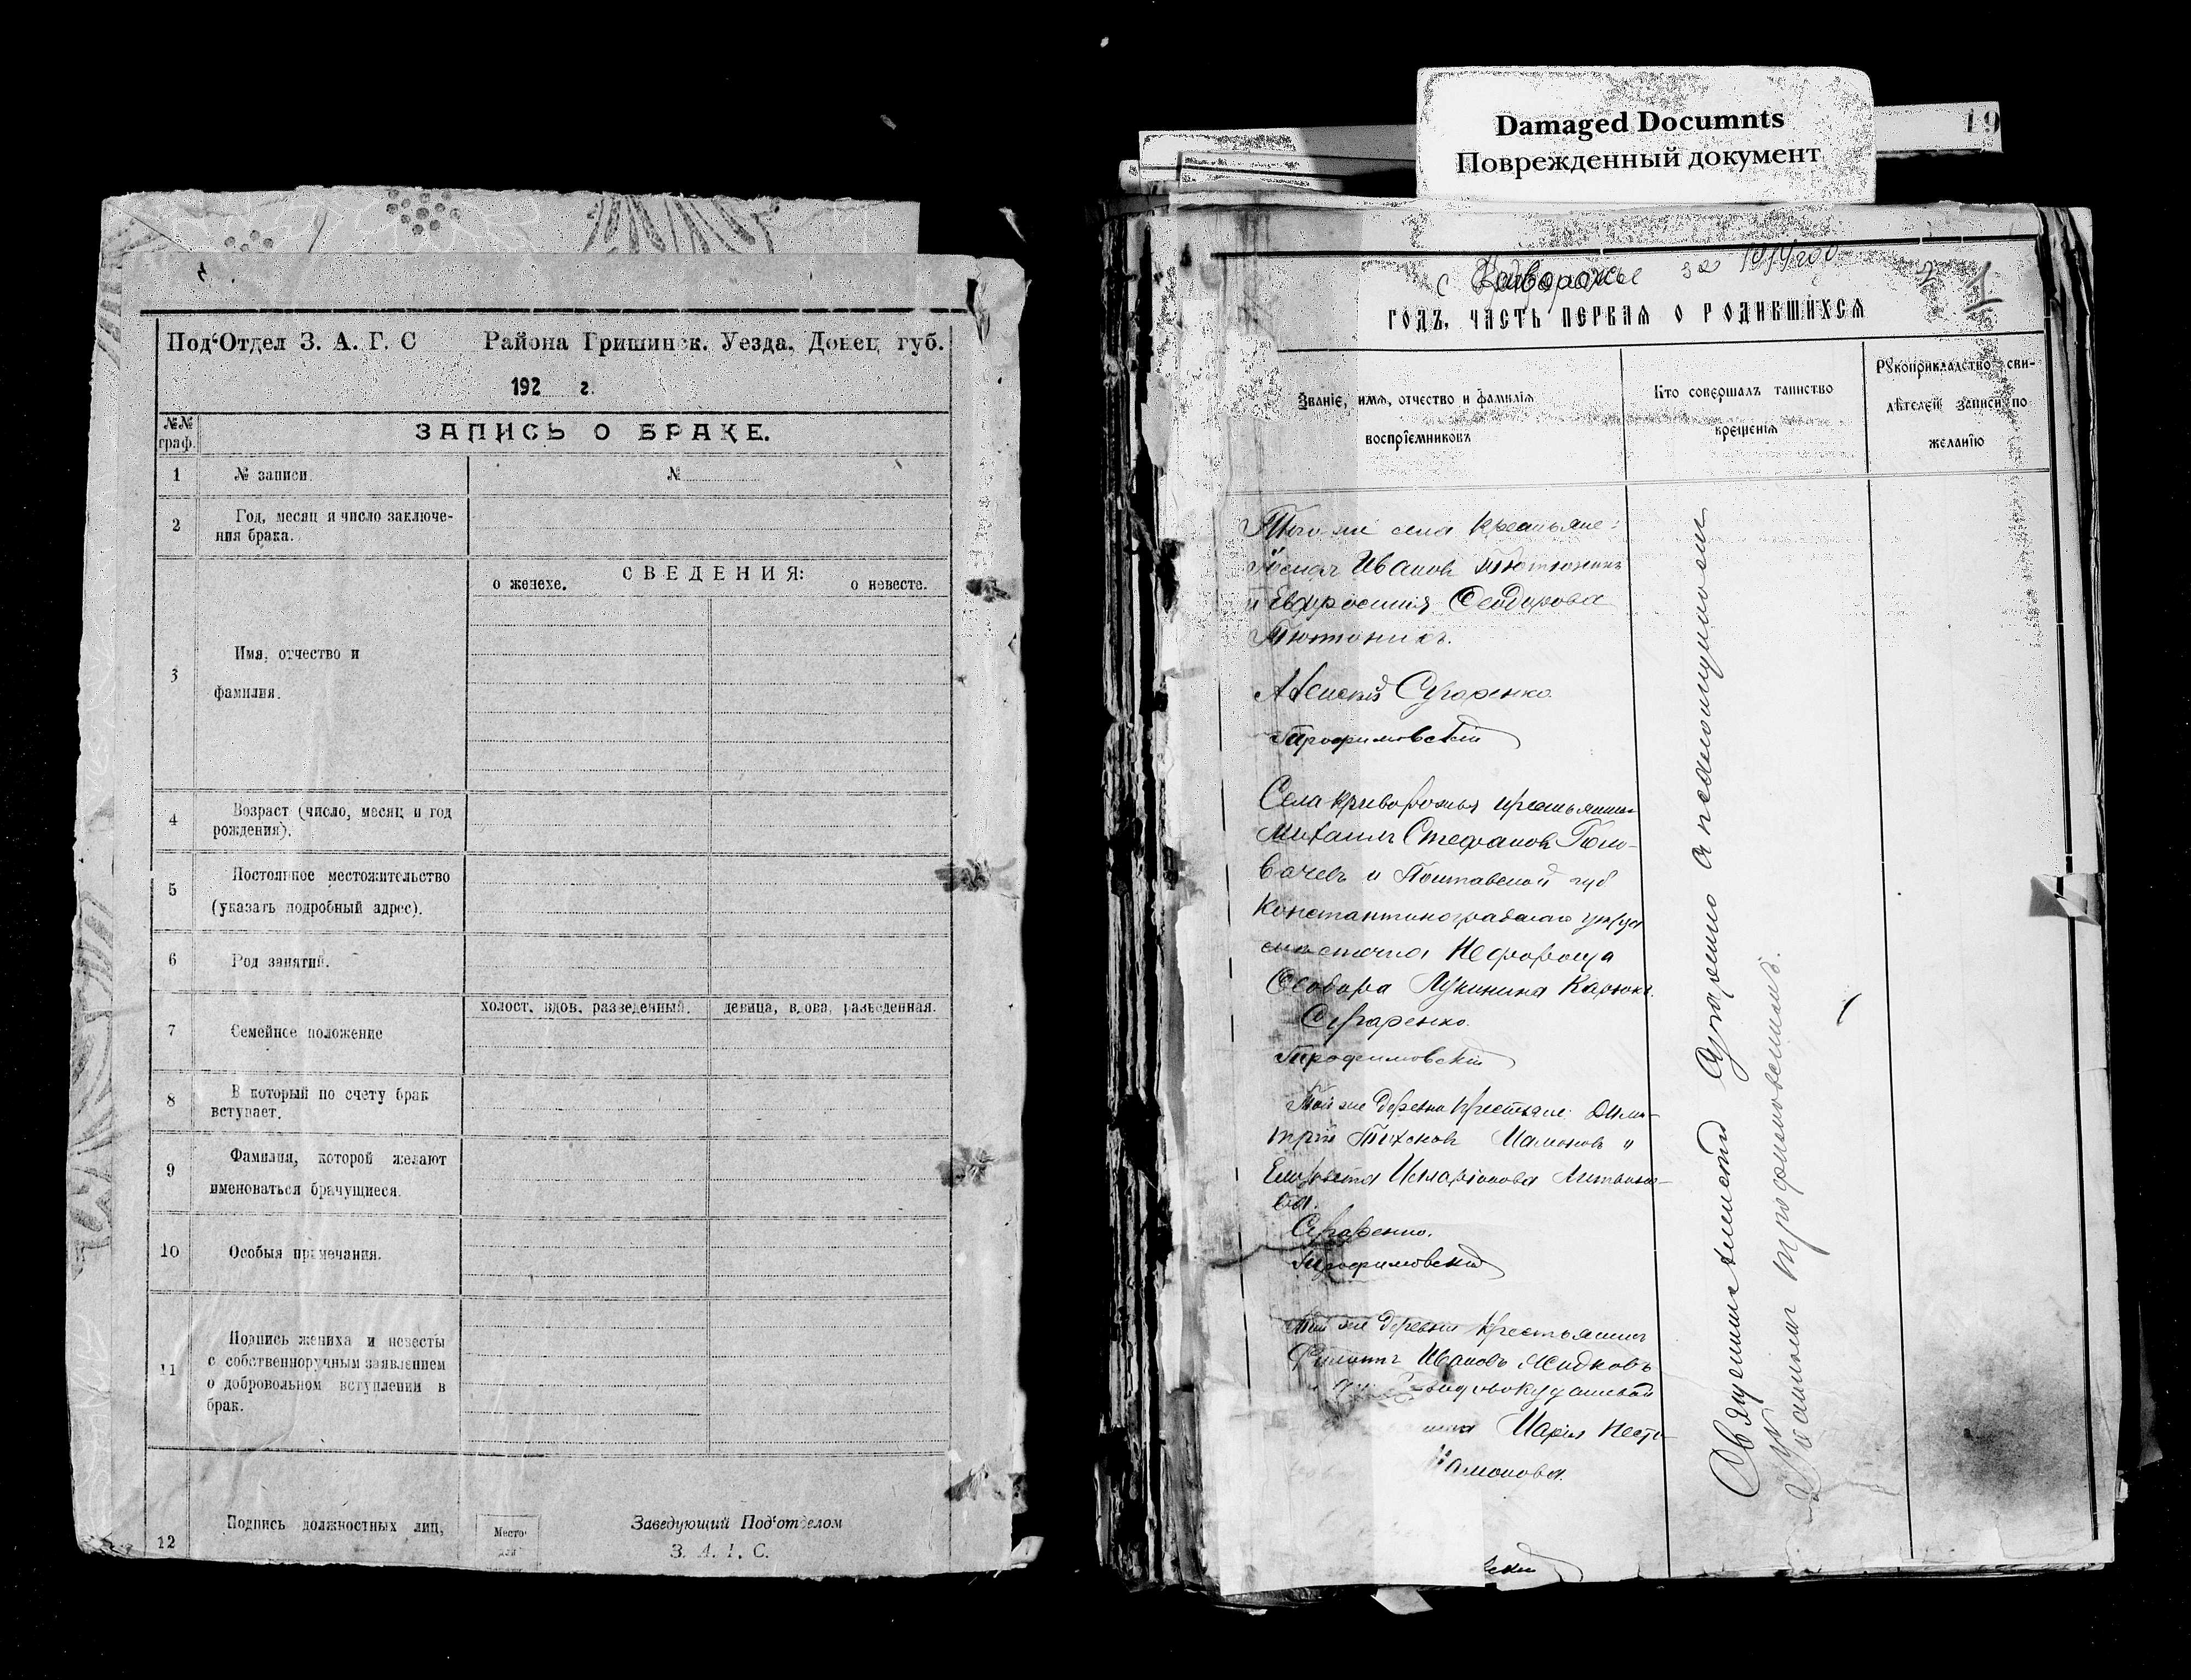 Damaged Documnts
Поврежденный документ
19
Под‘Отдел З. А. Г. С Района Гришинск. Уезда, Донец. губ.
192 г.
№№ граф.
ЗАПИСЬ О БРАКЕ.
1 № записи. №
2 Год, месяц и число заключе-
ния брака.
СВЕДЕНИЯ:
о женехе. о невесте.
3 Имя, отчество и
фамилия.
4 Возраст (число, месяц и год
рождения).
5 Постоянное местожительство
(указать подробный адрес).
6 Род занятий.
7 Семейное положение
холост, вдов, разведенный. девица, вдова, разведенная.
8 В который по счету брак
вступает.
9 Фамилия, которой желают
именоваться брачущиеся.
10 Особыя примечания.
11 Подпись жениха и невесты
с собственноручным заявлением
о добровольном вступлении в
брак.
12 Подпись должностных лиц,
Место
для
Заведующий Под‘отделом
З. А. Г. С.
с Криворожье за 1919 год
1
годъ, часть первая о родившихся
Званіе, имя, отчество и фамилія
воспріемниковъ
Кто совершалъ таинство
крещенія
Рукоприкладство сви-
дѣтелей записи по
желанію
Того-же села крестьяне:
Иванов
и Евфросинія Феодорова
Алексій Сухаренко
Трофимовскій
Села Криворожья крестьянин
Михаилъ Стефанов Голо-
вачевъ и Полтавской губ
Константиноградскаго уезда
местечка Нехвороща
Феодора Лукинина
Сухаренко.
Трофимовскій
Той же деревни крестьяне: Дими-
трій Тихонов Мамонов и
Елизавета Иларіонова Литвино-
ва.
Сухаренко.
Трофимовскій
Той же деревни крестьянин
Филиппъ Иванов Жидковъ
Марія
Мамонова.
Священник Алексій Сухаренко с псаломщиком
Трофимовским.